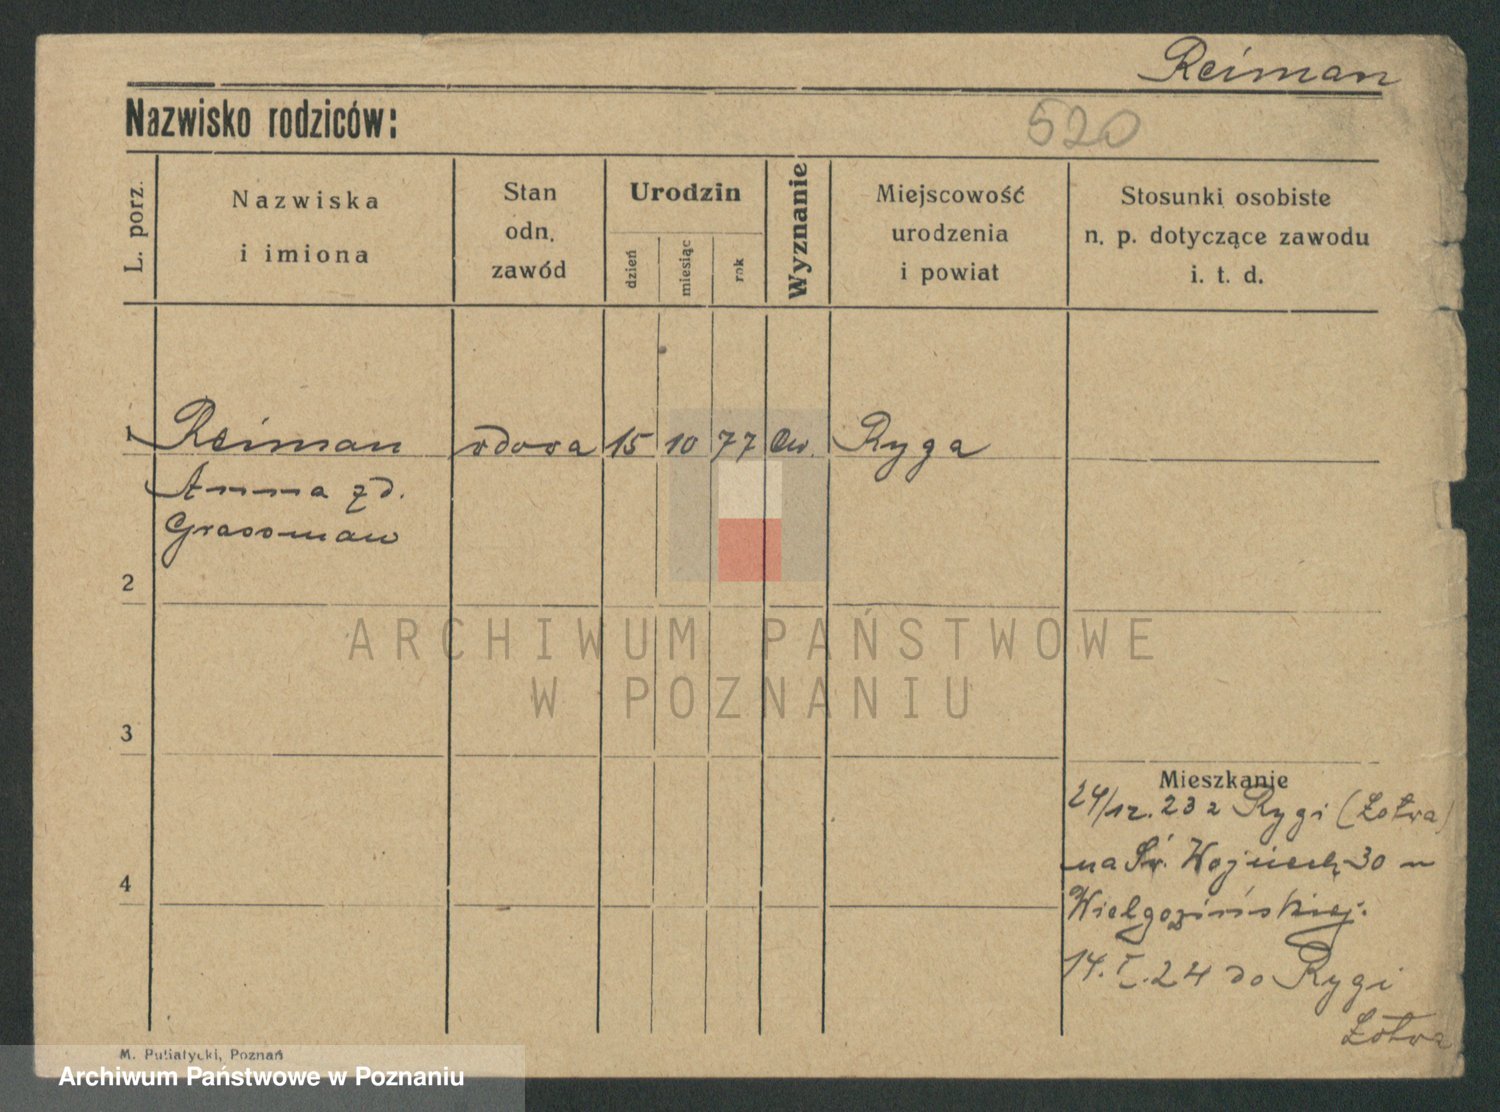 Reiman
Nazwisko rodziców:
520
L. porz.
Nazwiska
i imiona
Stan
odn.
zawód
Urodzin
dzień
miesiąc
rok
Wyznanie
Miejscowość
urodzenia
i powiat
Stosunki osobiste
n. p. dotyczące zawodu
i. t. d.
1 Reiman wdowa 15 10 77 Ew. Ryga
Anna zd.
Grassman
2
ARCHIWUM PAŃSTWOWE
W POZNANIU
3
Mieszkanie
24/12.23 z Rygi (Łotwa)
na Św. Wojciech 30 u
14.I.24 do Rygi
Łotwa
4
M. Putiatycki, Poznań
Archiwum Państwowe w Poznaniu